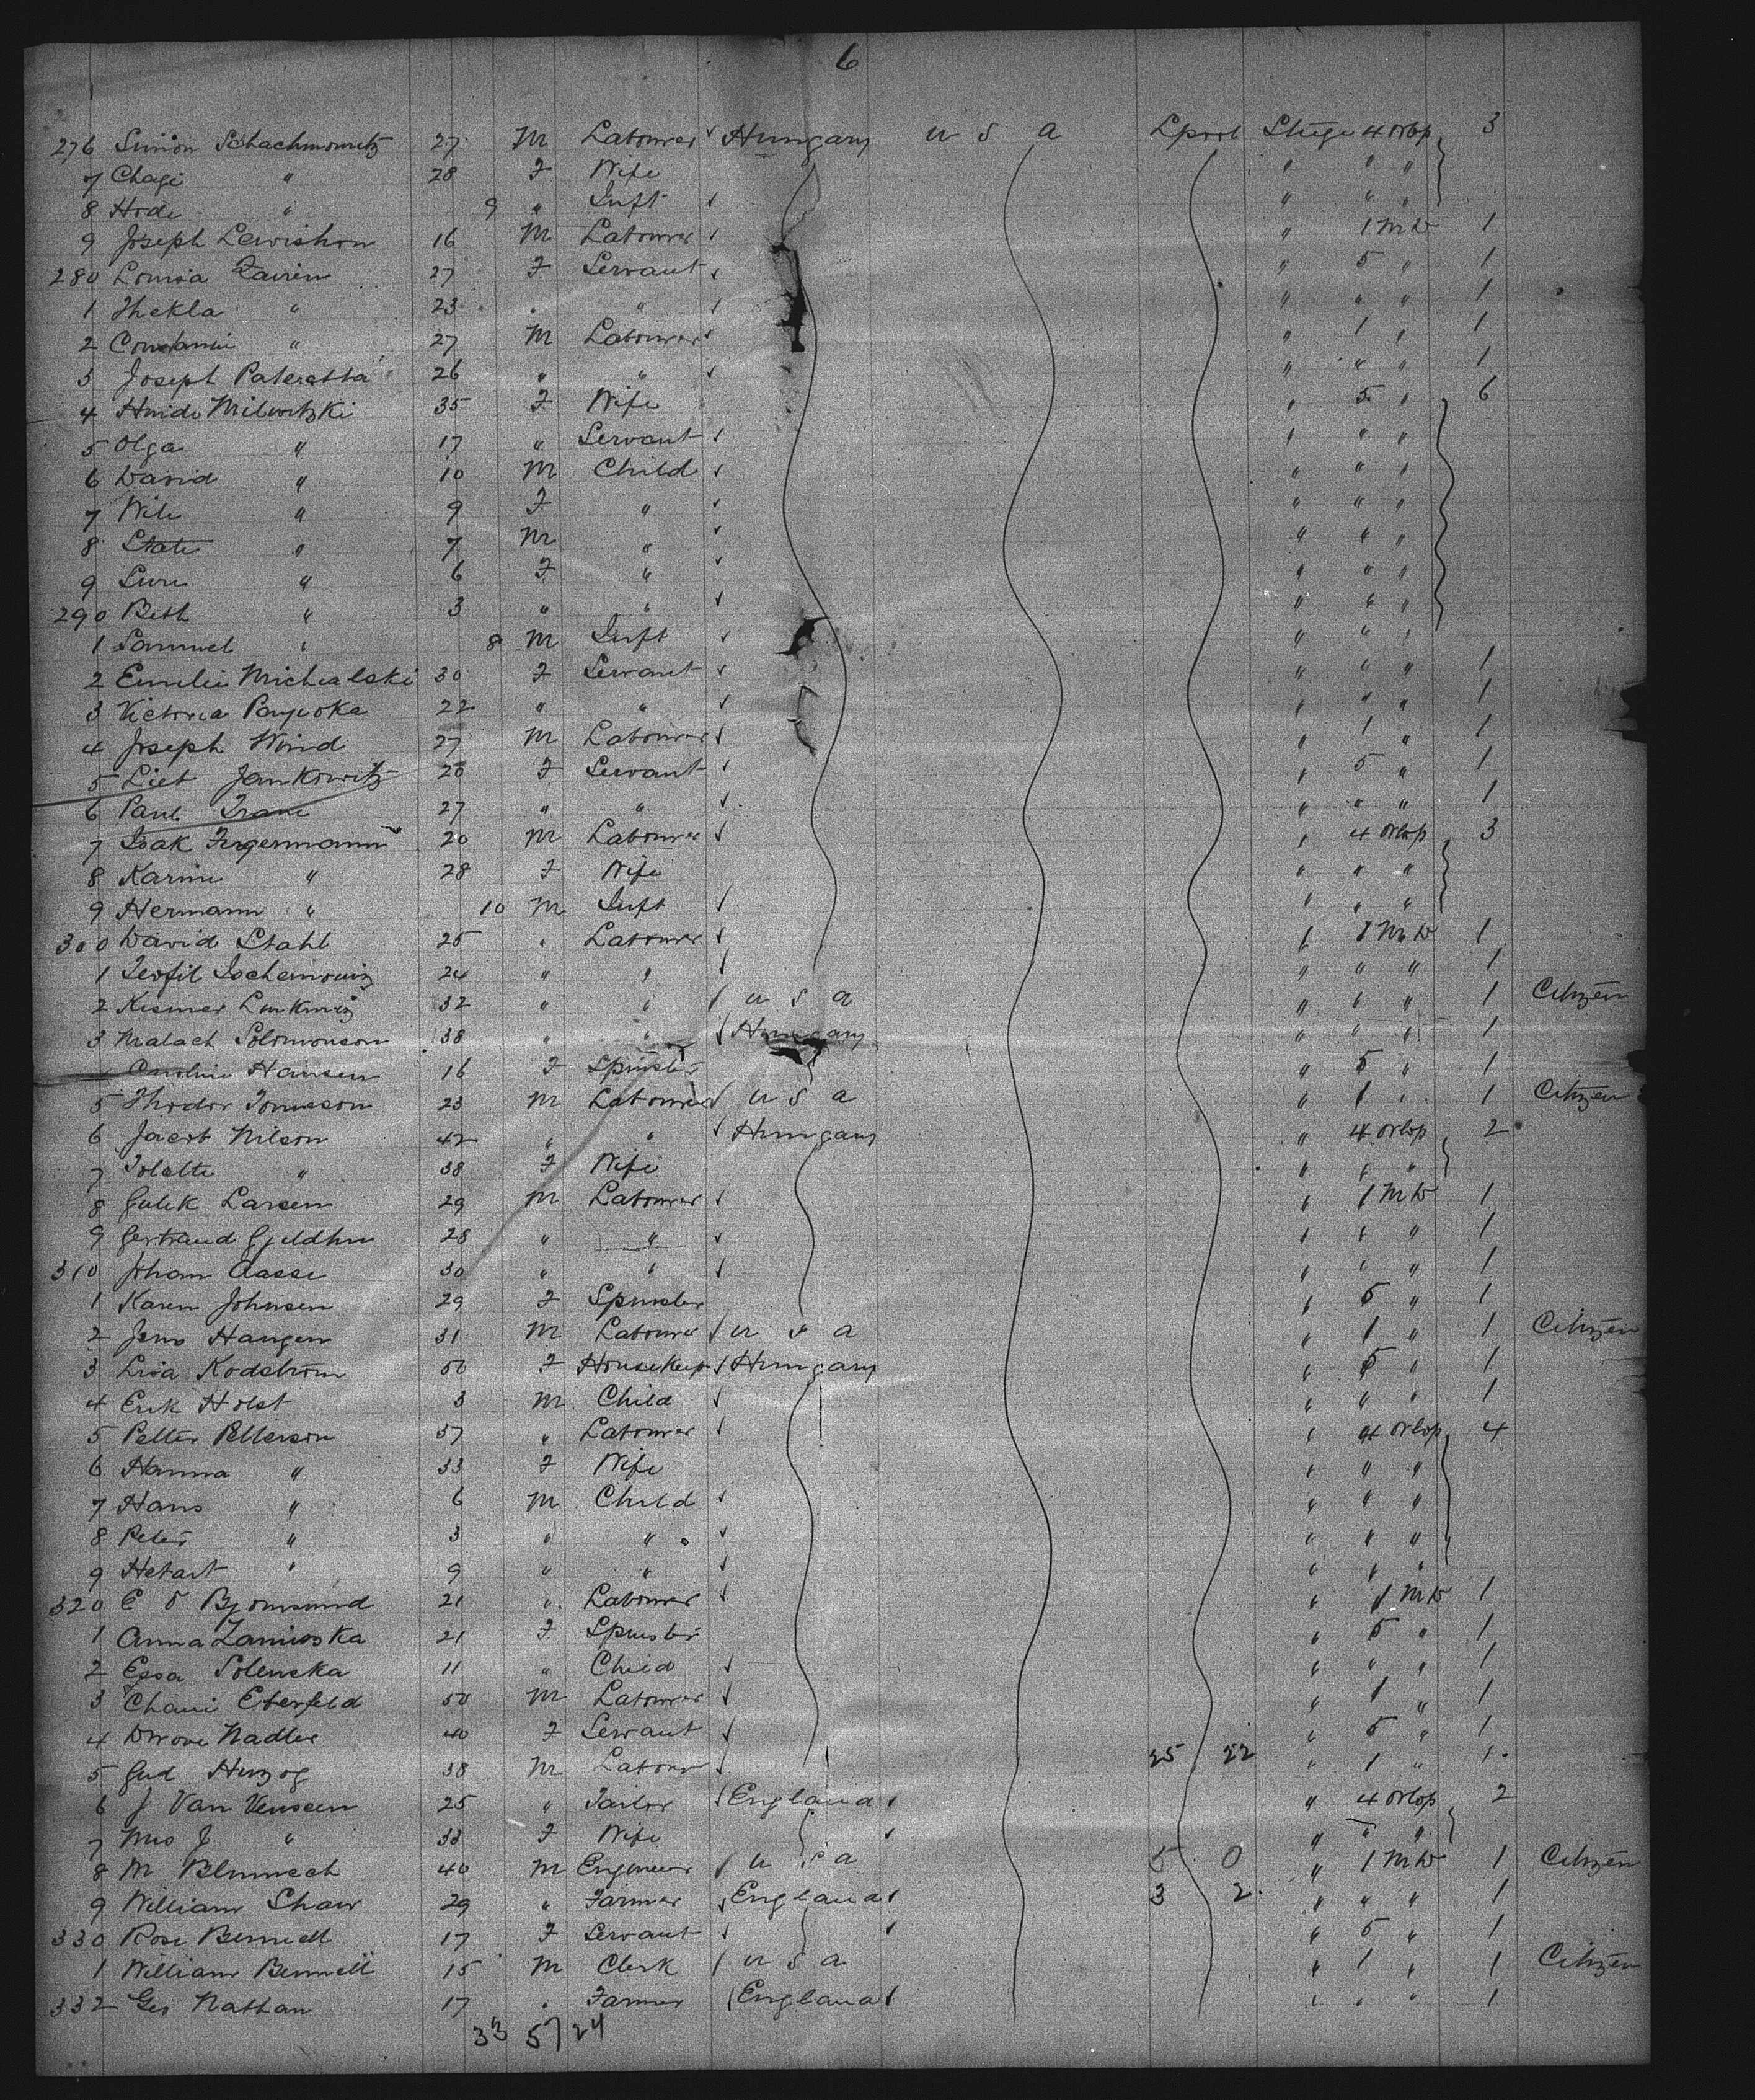 6
276 Simon Schachmowitz 27 M Labourer Hungary U S A Lpool Stege 4 Orlop 3
7 Chagi " 28 F Wife " " "
8 Hode " 9 " Inft " " "
9 Joseph Lewishon 16 M Labourer " 1 Mid 1
280 Louisa 27 F Servant " 5 " 1
1 Thekla " 23 " " " " " 1
2 " 27 M Labourer " 1 " 1
3 Joseph 26 " " " " " 1
4 35 F Wife " 5 " 6
5 Olga " 17 " Servant " " "
6 David " 10 M Child " " "
7 " 9 F " " " "
8 State " 7 M " " " "
9 Sure " 6 F " " " "
290 Beth " 3 " " " " "
1 Samuel " 8 M Inft " " "
2 Emilie Michalski 30 F Servant " " " 1
3 Victoria 22 " " " " " 1
4 Joseph Wind 27 M Labourer " 1 " 1
5 Liet Jankowitz 20 F Servant " 5 " 1
6 Paul 27 " " " " " 1
7 Isak 20 M Labourer " 4 Orlop 3
8 Karine " 28 F Wife " " "
9 Hermann " 10 M Inft " " "
300 David Stahl 25 " Labourer " 1 Mid 1
1 Teofil 24 " " " " " 1
2 32 " " U S A " " " 1 Citizen
3 Malach Solomonson 38 " " Hungary " " " 1
Caroline Hansen 16 F Spinster " 5 " 1
5 Thodor 23 M Labourer U S A " 1 " 1 Citizen
6 Jacob Nilson 42 " " Hungary " 4 Orlop 2
7 " 38 F Wife " " "
8 Gulik Larsen 29 M Labourer " 1 Mid 1
9 Gertraud 28 " " " " " 1
310 Johan Aasse 30 " " " " " 1
1 Karen Johnsen 29 F Spinster " 5 " 1
2 Jens Haugen 31 M Labourer U S A " 1 " 1 Citizen
3 Lisa Kodstrom 50 F Housekeep Hungary " 5 " 1
4 Erik Holst 3 M Child " " " 1
5 Petter Petterson 37 " Labourer " 4 Orlop 4
6 Hanna " 33 F Wife " " "
7 Hans " 6 M Child " " "
8 Peter " 3 " " " " "
9 " 9 " " " " "
320 E O 21 " Labourer " 1 Mid 1
1 Anna 21 F Spinster " 5 " 1
2 Solenska 11 " Child " " " 1
3 Eberfeld 50 M Labourer " 1 " 1
4 Nadler 40 F Servant " 5 " 1
5 Herzog 38 M Labour 25 22 " 1 " 1
6 J Van 25 " Tailor England " 4 Orlop 2
7 Mrs J " 33 F Wife " " "
8 M 40 M Engineer U S A 5 0 " 1 Mid 1 Citizen
9 William Shaw 29 " Farmer England 3 2 " " " 1
330 Rose Bennett 17 F Servant " 5 " 1
1 William Bennett 15 M Clerk U S A " 1 " 1 Citizen
332 Geo Nathan 17 " Farmer England " " " 1
33 57 24